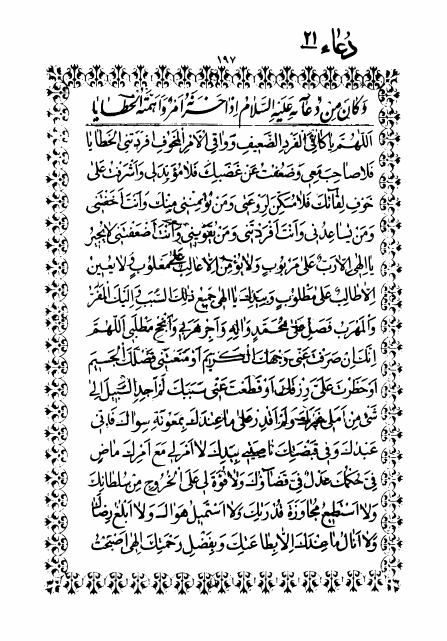 دعاء ٢١
١٩٧
وَكَانَ مِنْ دُعَائِهِ عَلَيْهِ السَّلَامُ إِذَا حَزَنَهُ أَمْرٌ وَأَهَمَّتْهُ الْخَطَايَا
اَللّٰهُمَّ يَا كَافِيَ الْفَرْدِ الضَّعِيفِ وَوَاقِيَ الْأَمْرِ الْمَخُوفِ أَفْرَدَتْنِي الْخَطَايَا
فَلَا صَاحِبَ مَعِي وَضَعُفْتُ عَنْ غَضَبِكَ فَلَا مُؤَيِّدَ لِي وَأَشْرَفْتُ عَلَى
خَوْفِ لِقَائِكَ فَلَا مُسَكِّنَ لِرَوْعَتِي وَمَنْ يُؤْمِنُنِي مِنْكَ وَأَنْتَ أَخَفْتَنِي
وَمَنْ يُسَاعِدُنِي وَأَنْتَ أَفْرَدْتَنِي وَمَنْ يُقَوِّينِي وَأَنْتَ أَضْعَفْتَنِي لَا يُجِيرُ
يَا إِلٰهِي إِلَّا رَبٌّ عَلَى مَرْبُوبٍ وَلَا يُؤْمِنُ إِلَّا غَالِبٌ عَلَى مَغْلُوبٍ وَلَا يُعِينُ
إِلَّا طَالِبٌ عَلَى مَطْلُوبٍ وَبِيَدِكَ يَا إِلٰهِي جَمِيعُ ذٰلِكَ السَّبَبِ وَإِلَيْكَ الْمَفَرُّ
وَالْمَهْرَبُ فَصَلِّ عَلَى مُحَمَّدٍ وَآلِهِ وَأَجِرْ هَرَبِي وَأَنْجِحْ مَطْلَبِي اَللّٰهُمَّ
إِنَّكَ إِنْ صَرَفْتَ عَنِّي وَجْهَكَ الْكَرِيمَ أَوْ مَنَعْتَنِي فَضْلَكَ الْجَسِيمَ
أَوْ حَظَرْتَ عَلَيَّ رِزْقَكَ أَوْ قَطَعْتَ عَنِّي سَبَبَكَ لَمْ أَجِدِ السَّبِيلَ إِلَى
شَيْءٍ مِنْ أَمَلِي غَيْرَكَ وَلَمْ أَقْدِرْ عَلَى مَا عِنْدَكَ بِمَعُونَةِ سِوَاكَ فَإِنِّي
عَبْدُكَ وَفِي قَبْضَتِكَ نَاصِيَتِي بِيَدِكَ لَا أَمْرَ لِي مَعَ أَمْرِكَ مَاضٍ
فِيَّ حُكْمُكَ عَدْلٌ فِيَّ قَضَاؤُكَ وَلَا قُوَّةَ لِي عَلَى الْخُرُوجِ مِنْ سُلْطَانِكَ
وَلَا أَسْتَطِيعُ مُجَاوَزَةَ قُدْرَتِكَ وَلَا أَسْتَمِيلُ هَوَاكَ وَلَا أَبْلُغُ رِضَاكَ
وَلَا أَنَالُ مَا عِنْدَكَ إِلَّا بِطَاعَتِكَ وَبِفَضْلِ رَحْمَتِكَ إِلٰهِي أَصْبَحْتُ